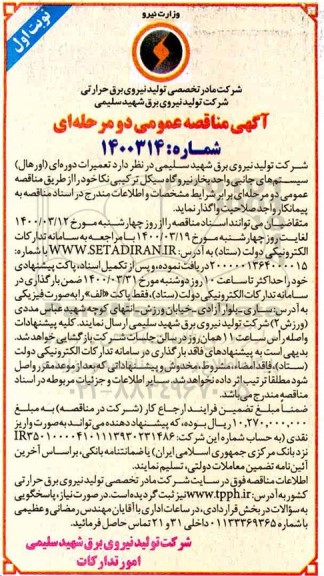 وزارت نیرو
نوبت اول
شرکت مادر تخصصی تولید نیروی برق حرارتی
شرکت تولید نیروی برق شهید سلیمی
آگهی مناقصه عمومی دو مرحله‌ای
شماره: ۱۴۰۰۳۱۴
شرکت تولید نیروی برق شهید سلیمی در نظر دارد تعمیرات دوره‌ای (اورهال)
سیستم‌های جانبی واحد بخار نیروگاه سیکل ترکیبی نکا خود را از طریق مناقصه
عمومی دو مرحله‌ای برابر شرایط مشخصات و اطلاعات مندرج در اسناد مناقصه به
پیمانکار واجد صلاحیت واگذار نماید.
متقاضیان می‌توانند اسناد مناقصه را از روز چهارشنبه مورخ ۱۴۰۰/۰۳/۱۲
لغایت روز چهارشنبه مورخ ۱۴۰۰/۰۳/۱۹ با مراجعه به سامانه تدارکات
الکترونیکی دولت (ستاد) به آدرس: WWW.SETADIRAN.IR با شماره:
۲۰۰۰۰۰۱۳۶۴۰۰۰۰۱۵ دریافت نموده، و پس از تکمیل اسناد، پاکت پیشنهادی
خود را حداکثر تا ساعت ۱۰ روز دوشنبه مورخ ۱۴۰۰/۰۳/۳۱ ضمن بارگذاری در
سامانه تدارکات الکترونیکی دولت (ستاد)، فقط پاکت «الف» را به صورت فیزیکی
به آدرس ساری، بلوار آزادی، خیابان ورزش، انتهای کوچه شهید عباس مددی
(ورزش ۲) شرکت تولید نیروی برق شهید سلیمی ارسال نمایند. کلیه پیشنهادات
واصله رأس ساعت ۱۱ همان روز در سالن جلسات شرکت بازگشایی خواهد شد.
بدیهی است به پیشنهادهای فاقد بارگذاری در سامانه تدارکات الکترونیکی دولت
(ستاد)، فاقد امضاء، مشروط، مخدوش و پیشنهاداتی که بعد از موعد مقرر واصل
شود مطلقا ترتیب اثر داده نخواهد شد. سایر اطلاعات و جزئیات مربوطه در اسناد
مناقصه مندرج می‌باشد.
ضمنا مبلغ تضمین فرایند ارجاع کار (شرکت در مناقصه) به مبلغ
۱۰.۲۷۰.۰۰۰.۰۰۰ ریال بوده، که پیشنهاد دهنده می‌تواند به صورت واریز
نقدی (به حساب شماره این شرکت: IR۳۵۰۱۰۰۰۰۴۱۰۱۱۱۳۹۳۰۲۳۱۴۸۶
نزد بانک مرکزی جمهوری اسلامی ایران) یا ضمانتنامه بانکی، بر اساس آخرین
آئین‌نامه تضمین معاملات دولتی، تسلیم نمایند.
اطلاعات مناقصه فوق در سایت شرکت مادر تخصصی تولید نیروی برق حرارتی
کشور به آدرس: www.tpph.ir نیز ثبت گردیده است. در صورت نیاز، پاسخگویی
به سؤالات در بخش قراردادی، در ساعات اداری با آقایان مهندس رمضانی و عظیمی
با شماره ۰۱۱۳۳۳۶۹۳۶۵ داخلی ۳۱ و ۲۱ تماس حاصل فرمائید.
شرکت تولید نیروی برق شهید سلیمی
امور تدارکات